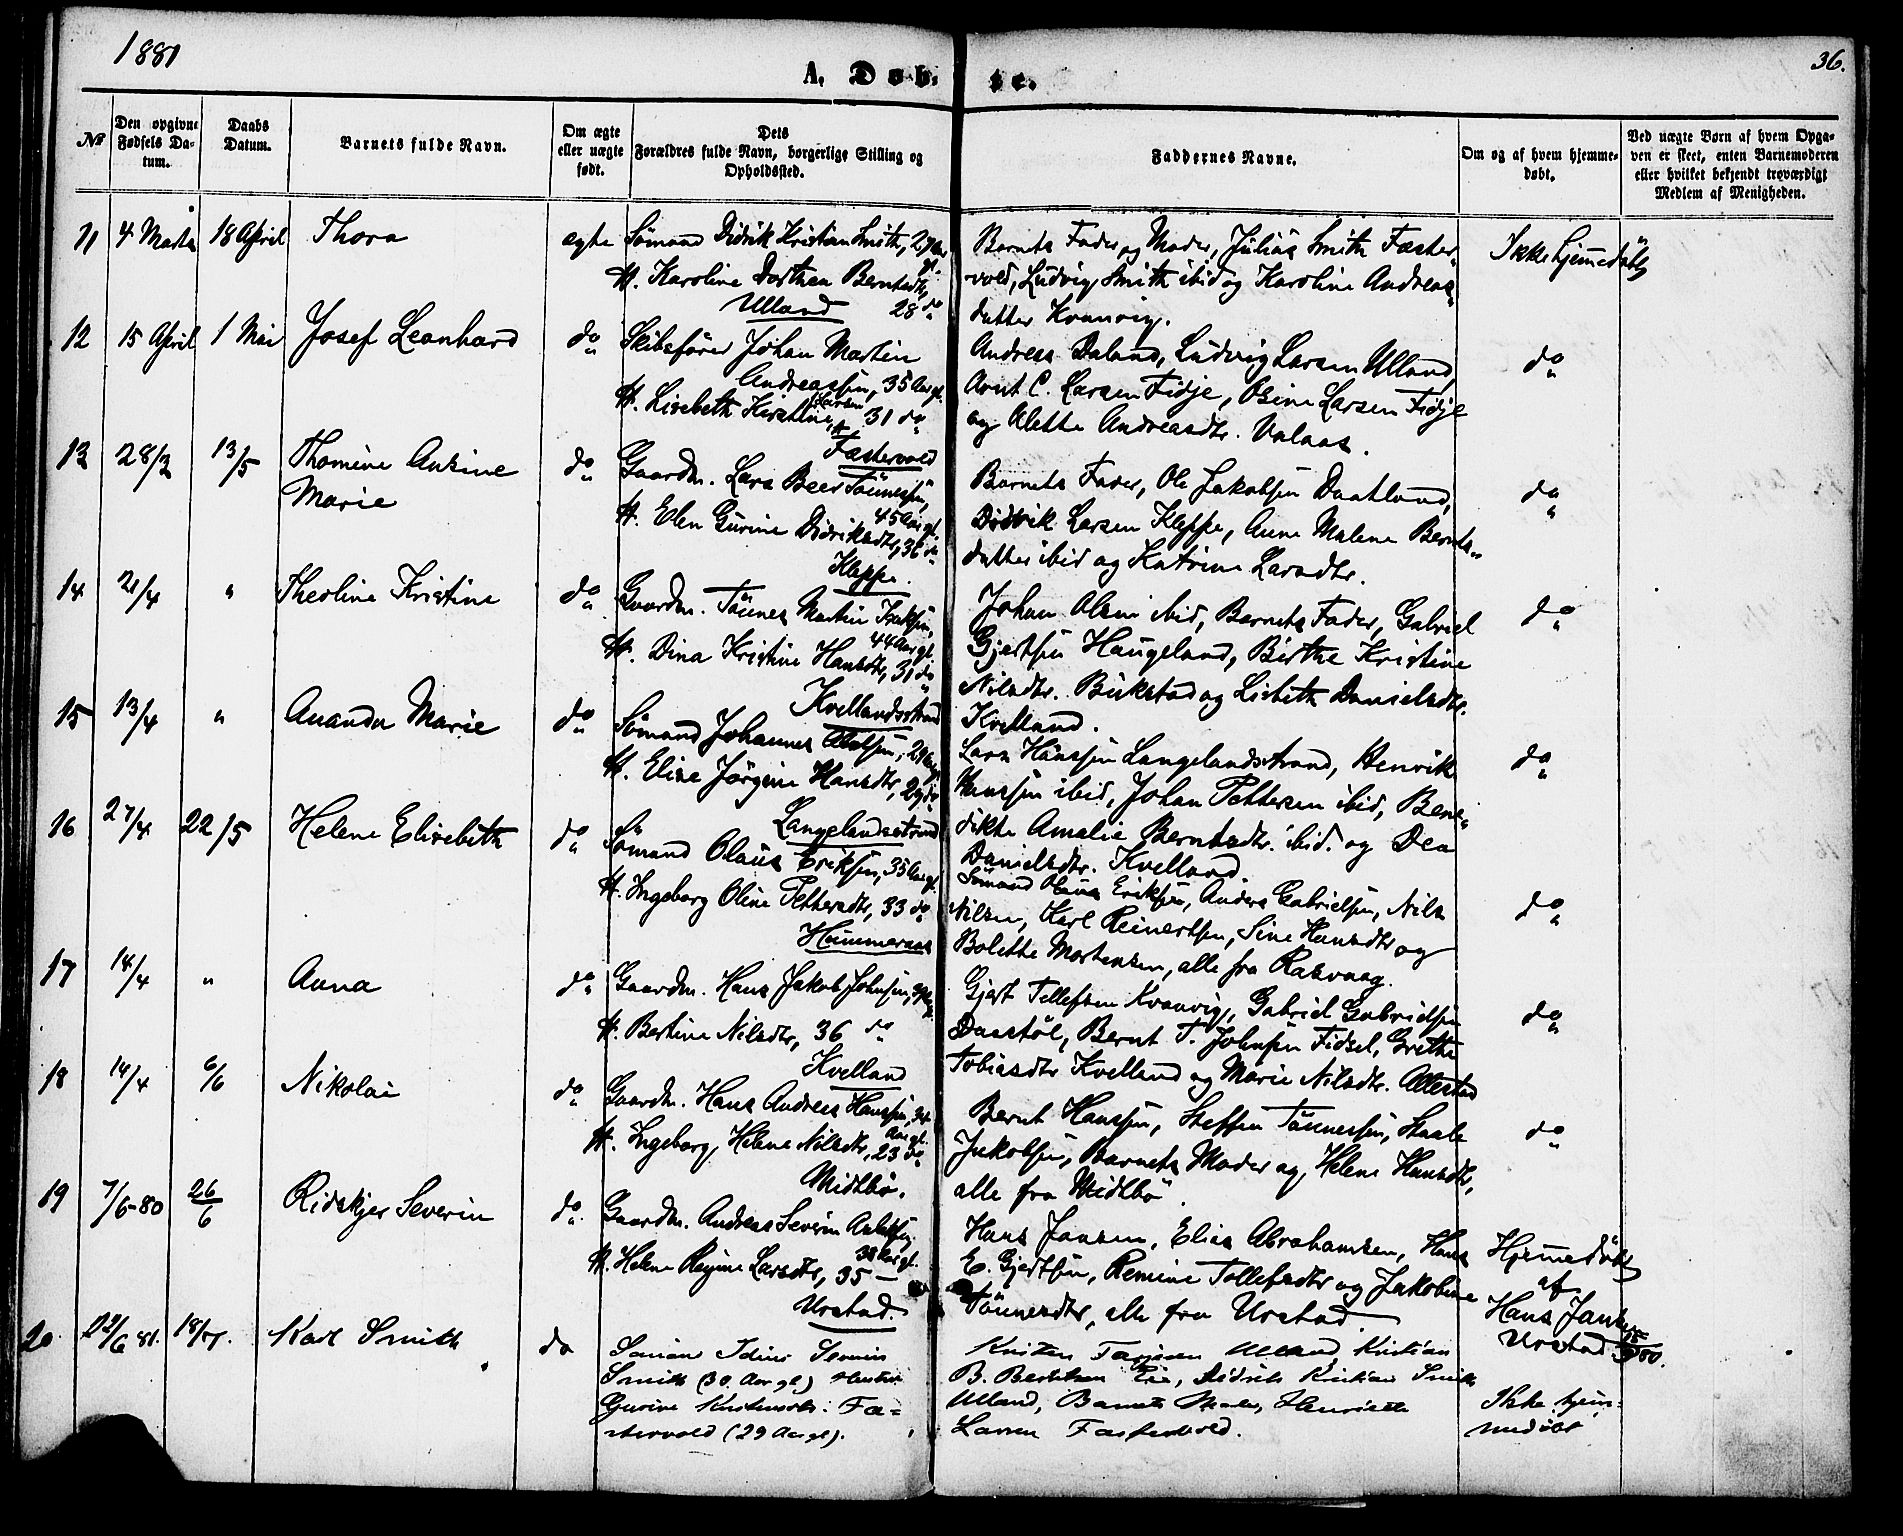 1881
36.
A. Døb- te.
№ | Den opgivne Fødsels Datum. | Daabs Datum. | Barnets fulde Navn. | Om ægte eller uægte født. | Dets Forældres fulde Navn, borgerlige Stilling og Opholdssted. | Faddernes Navne. | Om og af hvem hjemmedøbt. | Ved uægte Børn af hvem Opgaven er skeet, enten Barnemoderen eller hvilket bekjendt troværdigt Medlem af Menigheden.
11 4 Marts 18 April Thora ægte Sømand Didrik Kristian Smith, 29 Aar gl.
H. Karoline Dorthea Berntsdtr,
Ulland 28 do
Barnets Fader og Moder, Julius Smith Fæster-
vold, Ludvig Smith ibid og Karoline Andreas-
datter Kvanvig.
Ikke hjemmedøbt
12 15 April 1 Mai Josef Leonhard do Skibsfører Johan Martin
Andreassen, 35 Aar gl.
H. Lisebeth Kirstine Larsen, 31 do
Fæstervold
Andreas Daland, Ludvig Larsen Ulland,
Arnt C. Larsen Fidje, Osine Larsen Fidje
og Alette Andreasdtr. Valaas.
do
13 28/2 13/5 Thomine Aurine
Marie
do Gaardm. Lars Beer Tønnessen,
45 Aar gl.
H. Elen Gurine Didriksdtr, 36 do
Kleppe.
Barnets Fader, Ole Jakobsen Daatland,
Didrik Larsen Kleppe, Anne Malene Bernts-
datter ibid og Katrine Larsdtr.
do
14 21/4 " Theoline Kristine do Gaardm. Tønnes Martin Isaksen,
44 Aar gl.
H. Dina Kristine Hansdtr, 31 do
Kvellandsstrand
Johan Olsen ibid, Barnets Fader, Gabriel
Gjertsen Haugeland, Birthe Kristine
Nilsdtr. Birkstad og Lisbeth Danielsdtr.
Kvelland.
do
15 13/4 " Ananda Marie do Sømand Johannes Olsen, 29 Aar gl.
H. Elise Jørgine Hansdtr, 29 do
Langelandsstrand
Lars Hanssen Langelandsstrand, Henrik
Hanssen ibid, Johan Pettersen ibid, Bene-
dikte Amalie Berntsdtr. ibid. og Dea
Danielsdtr. Kvelland.
do
16 27/4 22/5 Helene Elisebeth do Sømand Olaus Eriksen, 35 Aar gl.
H. Ingeborg Oline Pettersdtr, 33 do
Hummeraas
Sømand Olaus Eriksen, Anders Gabrielsen, Nils
Nilsen, Karl Reinertsen, Sine Hansdtr og
Bolette Mortensen, alle fra Rasvaag.
do
17 14/4 " Anna do Gaardm. Hans Jakob Johnsen,
H. Bertine Nilsdtr, 36 do
Kvelland
Gjert Tellefsen Kvanvig, Gabriel Gabrielsen
Daastøl, Bernt T. Johnsen Fidsel, Grethe
Tobiasdtr Kvelland og Marie Nilsdtr. Allestad
do
18 14/4 6/6 Nikolai do Gaardm. Hans Andreas Hanssen, 24
Aar gl.
H. Ingeborg Helene Nilsdtr, 23 do
Midtbø.
Bernt Hanssen, Steffen Tønnessen, Staale
Jakobsen, Barnets Moder og Helene Hansdtr,
alle fra Midtbø.
do
19 7/6-80 26/6 Ridskjer Severin do. Gaardm. Andreas Severin
38 Aar gl.
H. Helene Regine Larsdtr, 35 —
Urstad.
Hans Jansen, Elias Abrahamsen, Hans
E. Gjertsen, Remine Tollefsdtr og Jakobine
Tønnesdtr, alle fra Urstad.
Hjemmedøbt
af
Hans Jansen
Urstad
20 22/6 81. 18/7. Karl Smith do Sømand Idius Severin
Smith (30. Aar gl.) Hustru
Gurine Fæ-
stervold (29 Aar gl.).
Kristen Tarjesen Ulland, Kristian
B. Berntsen Didrik Kristian Smith
Ulland, Barnets Moder, Henriette
Larsen Fæstervold.
Ikke hjem-
medøbt